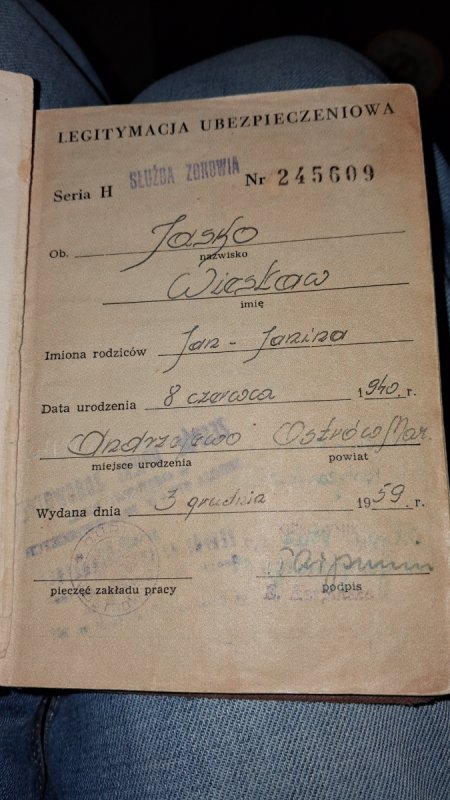 LEGITYMACJA UBEZPIECZENIOWA
Seria H SŁUŻBA ZDROWIA Nr 245609
Ob. Jasko
nazwisko
Wiesław
imię
Imiona rodziców Jan - Janina
Data urodzenia 8 czerwca 1940. r.
Andrzejewo Ostrów Maz.
miejsce urodzenia powiat
Wydana dnia 3 grudnia 1959. r.
pieczęć zakładu pracy podpis